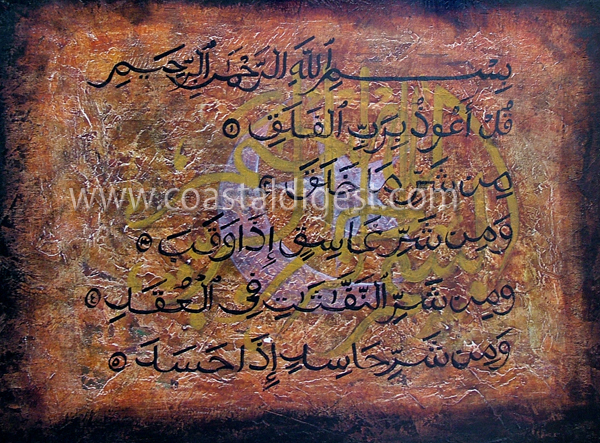 بِسْمِ ٱللَّهِ ٱلرَّحْمَٰنِ ٱلرَّحِيمِ
قُلْ أَعُوذُ بِرَبِّ ٱلْفَلَقِ
مِن شَرِّ مَا خَلَقَ
www.coastaldigest.com
وَمِن شَرِّ غَاسِقٍ إِذَا وَقَبَ
وَمِن شَرِّ ٱلنَّفَّٰثَٰتِ فِى ٱلْعُقَدِ
وَمِن شَرِّ حَاسِدٍ إِذَا حَسَدَ